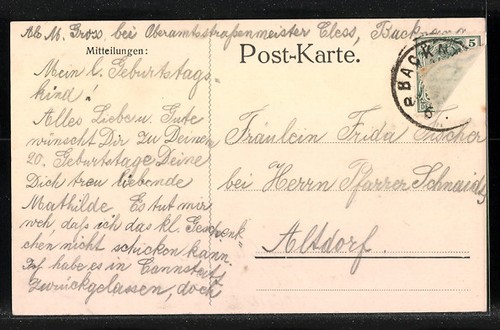 Abs. M. Gross, bei Oberamtsstraßenmeister Cless, Backnang
Mitteilungen:
Post-Karte.
5
BACKNA
Mein l. Geburtstags-
kind!
Alles Liebe u. Gute
wünscht Dir zu Deinem
20. Geburtstage Deine
Dich treu liebende
Mathilde Es tut mir
weh, daß ich das kl. Geschenk
chen nicht schicken kann.
Ich habe es in Cannstatt
zurückgelassen, doch
Fräulein Frida Fischer
bei Herrn Pfarrer
Altdorf.